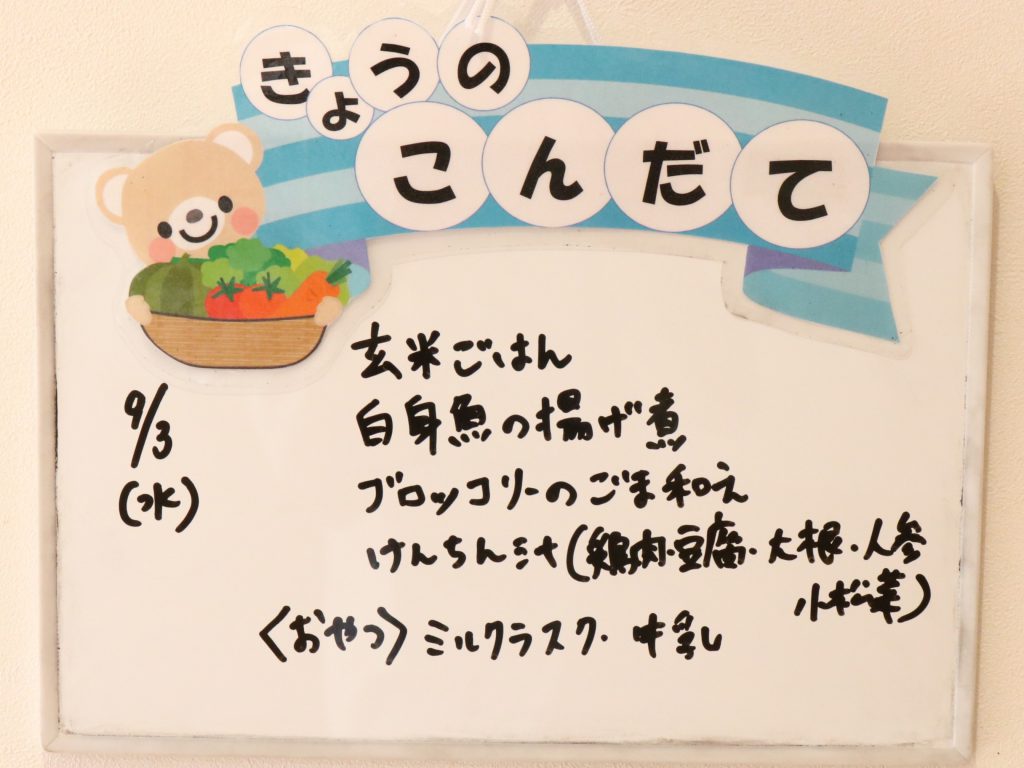 きょうの
こんだて
9/3
(水)
玄米ごはん
白身魚の揚げ煮
ブロッコリーのごま和え
けんちん汁(鶏肉・豆腐・大根・人参
小松菜)
〈おやつ〉ミルクラスク・牛乳